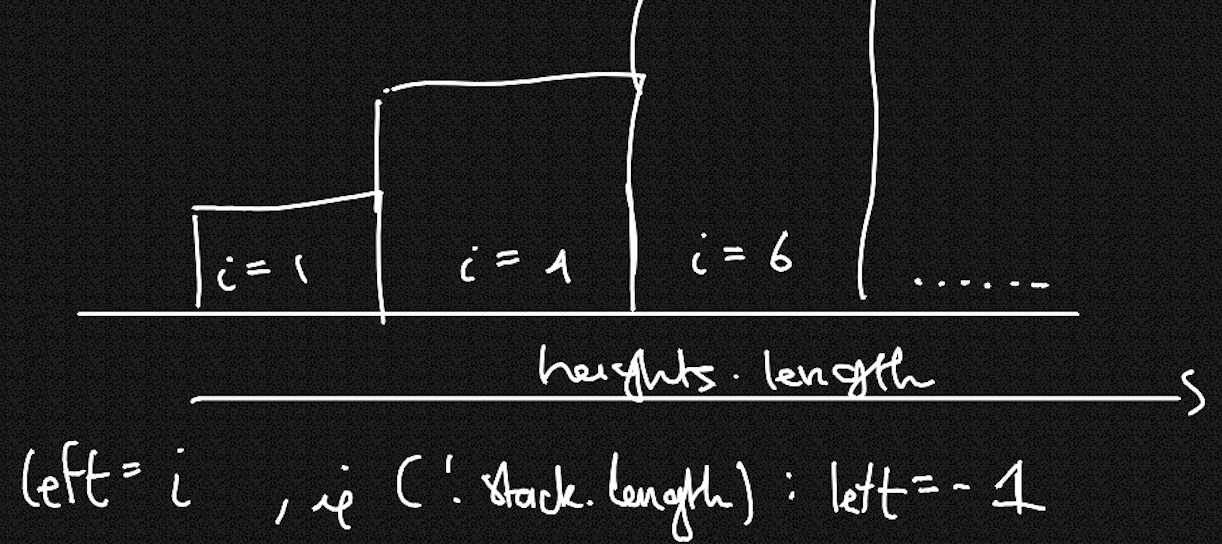 i = 1 i = 4 i = 6 ......
heights.length
left = i , if (!stack.length) : left = -1